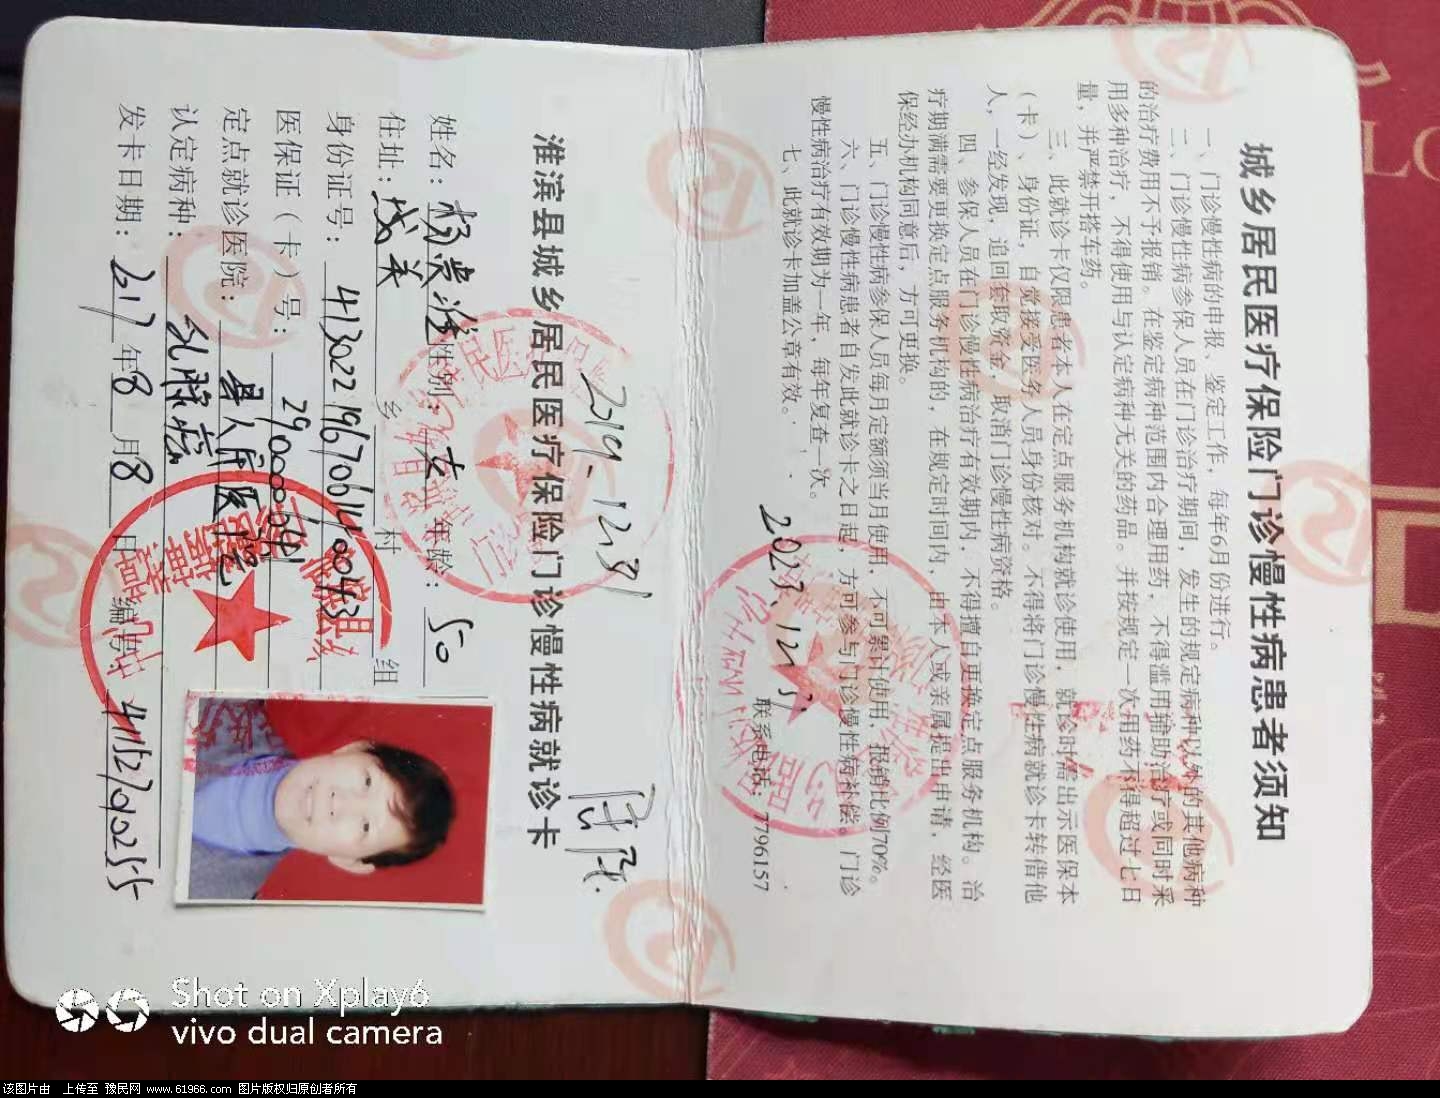 城乡居民医疗保险门诊慢性病患者须知
一、门诊慢性病的申报、鉴定工作，每年6月份进行。
二、门诊慢性病参保人员在门诊治疗期间，发生的规定病种以外的其他病种
的治疗费用不予报销。在鉴定病种范围内合理用药，不得滥用辅助治疗或同时采
用多种治疗，不得使用与认定病种无关的药品。并按规定一次用药不得超过七日
量，并严禁开搭车药。
三、此就诊卡仅限患者本人在定点服务机构就诊使用，就诊时需出示医保本
（卡）、身份证，自觉接受医务人员身份核对。不得将门诊慢性病就诊卡转借他
人，一经发现，追回套取资金，取消门诊慢性病资格。
四、参保人员在门诊慢性病治疗有效期内，不得擅自更换定点服务机构。治
疗期满需要更换定点服务机构的，在规定时间内，由本人或亲属提出申请，经医
保经办机构同意后，方可更换。
五、门诊慢性病参保人员每月定额须当月使用，不可累计使用，报销比例70%。
六、门诊慢性病患者自发此就诊卡之日起，方可参与门诊慢性病补偿。门诊
慢性病治疗有效期为一年，每年复查一次。
七、此就诊卡加盖公章有效。
2023.12.31
联系电话：7796157
2019.12.31
淮滨县城乡居民医疗保险门诊慢性病就诊卡
姓名：杨 性别：女 年龄：50
住址： 乡 村 组
身份证号：413022196706110043
医保证（卡）号：
定点就诊医院：县人民医院
认定病种：
发卡日期：2017年8月8日 编号：411527020255
Shot on Xplay6
vivo dual camera
该图片由 上传至 豫民网 www.61966.com 图片版权归原创者所有